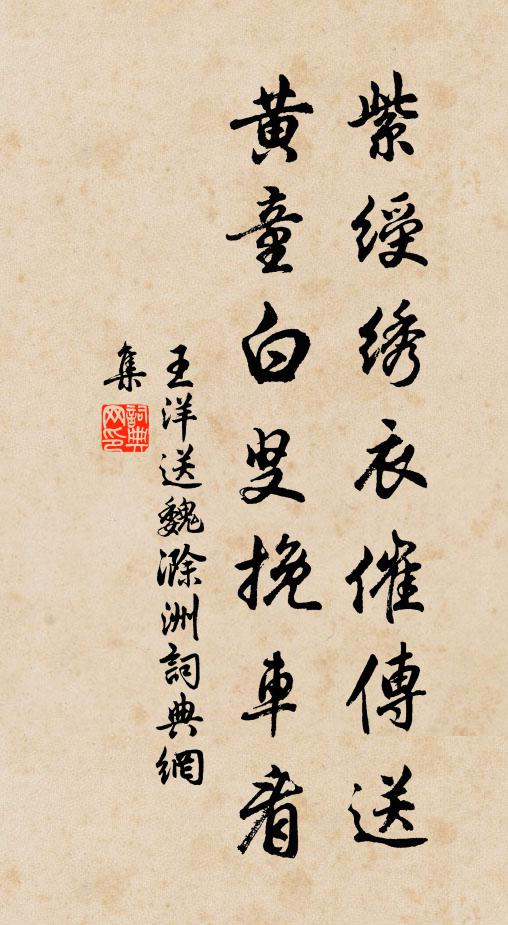 紫綬绣衣催傳送
黄童白叟挽車看
王洋送魏滁洲詞典網
集
詞典网印